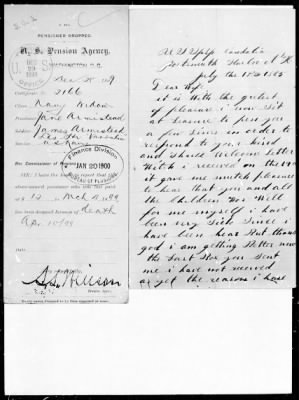 PENSIONER DROPPED.
U. S. Pension Agency,
WASHINGTON, D.C.
Certificate No. 3166
Class Navy Widow
Pensioner Jane Armistead
Soldier James Armistead
U.S. Navy
Finance Division
JAN 20 1900
SIR: I have the honor to report that the
above-named pensioner who was last paid
at $12, to Mch 4, 1899
has been dropped because of Death
Very respectfully,
Pension Agent.
U S Ship Vandalia
Portsmouth Harbor N H
July the 18th 1865
Dear Wife
it is With the gratest
of pleasure i now Sit
at Leasure to pen you
a few Lines in order to
respond to your kind
and Should Welcome Letter
Witch i received on the
it gave me mutch pleasure
to hear that you and all
the Children Are Well
for me myself i have
been very Sick Since i
have been hear But thank
god i am getting Better now
the Last Box you Sent
me i have not received
as yet the reason i have